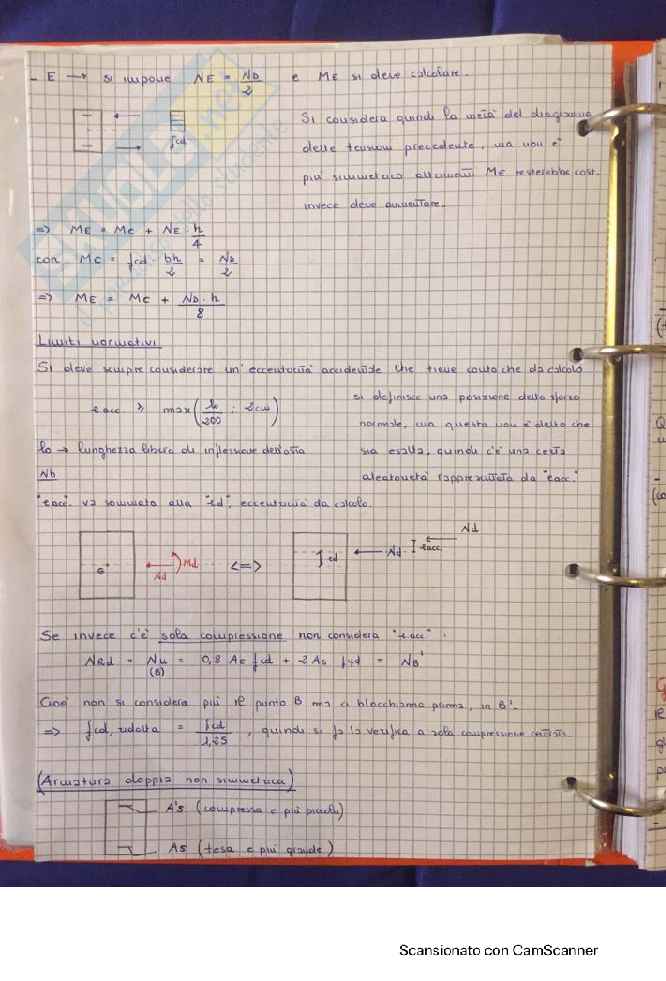 - E → si impone NE = ND/2 e ME si deve calcolare.
fcd
Si considera quindi la metà del diagramma
delle tensioni precedente, ma non è
più simmetrico altrimenti ME resterebbe cost.
invece deve aumentare.
=> ME = MC + NE · h/4
con MC = fcd · bh/2 = ND/2
=> ME = MC + ND · h/8
Limiti normativi
Si deve sempre considerare un' eccentricità accidentale che tiene conto che da calcolo
eacc ≥ max(lo/200 ; 2cm) si definisce una posizione dello sforzo
normale, ma questo non è detto che
lo → lunghezza libera di inflessione dell'asta sia esatta, quindi c'è una certa
Nb aleatorietà rappresentata da "eacc."
"eacc" va sommata alla "ed", eccentricità da calcolo.
G Nd Md <=> ed Nd eacc Nd
Se invece c'è sola compressione non considera "eacc".
NRd = Nu (B) = 0,8 Ac fcd + 2 As fyd = NB'
Cioè non si considera più il punto B ma ci blocchiamo prima, in B'.
=> fcd, ridotta = fcd/1,25 , quindi si fa la verifica a sola compressione
(Armatura doppia non simmetrica)
A's (compressa e più piccola)
As (tesa e più grande)
SKUOLA.net
Scansionato con CamScanner